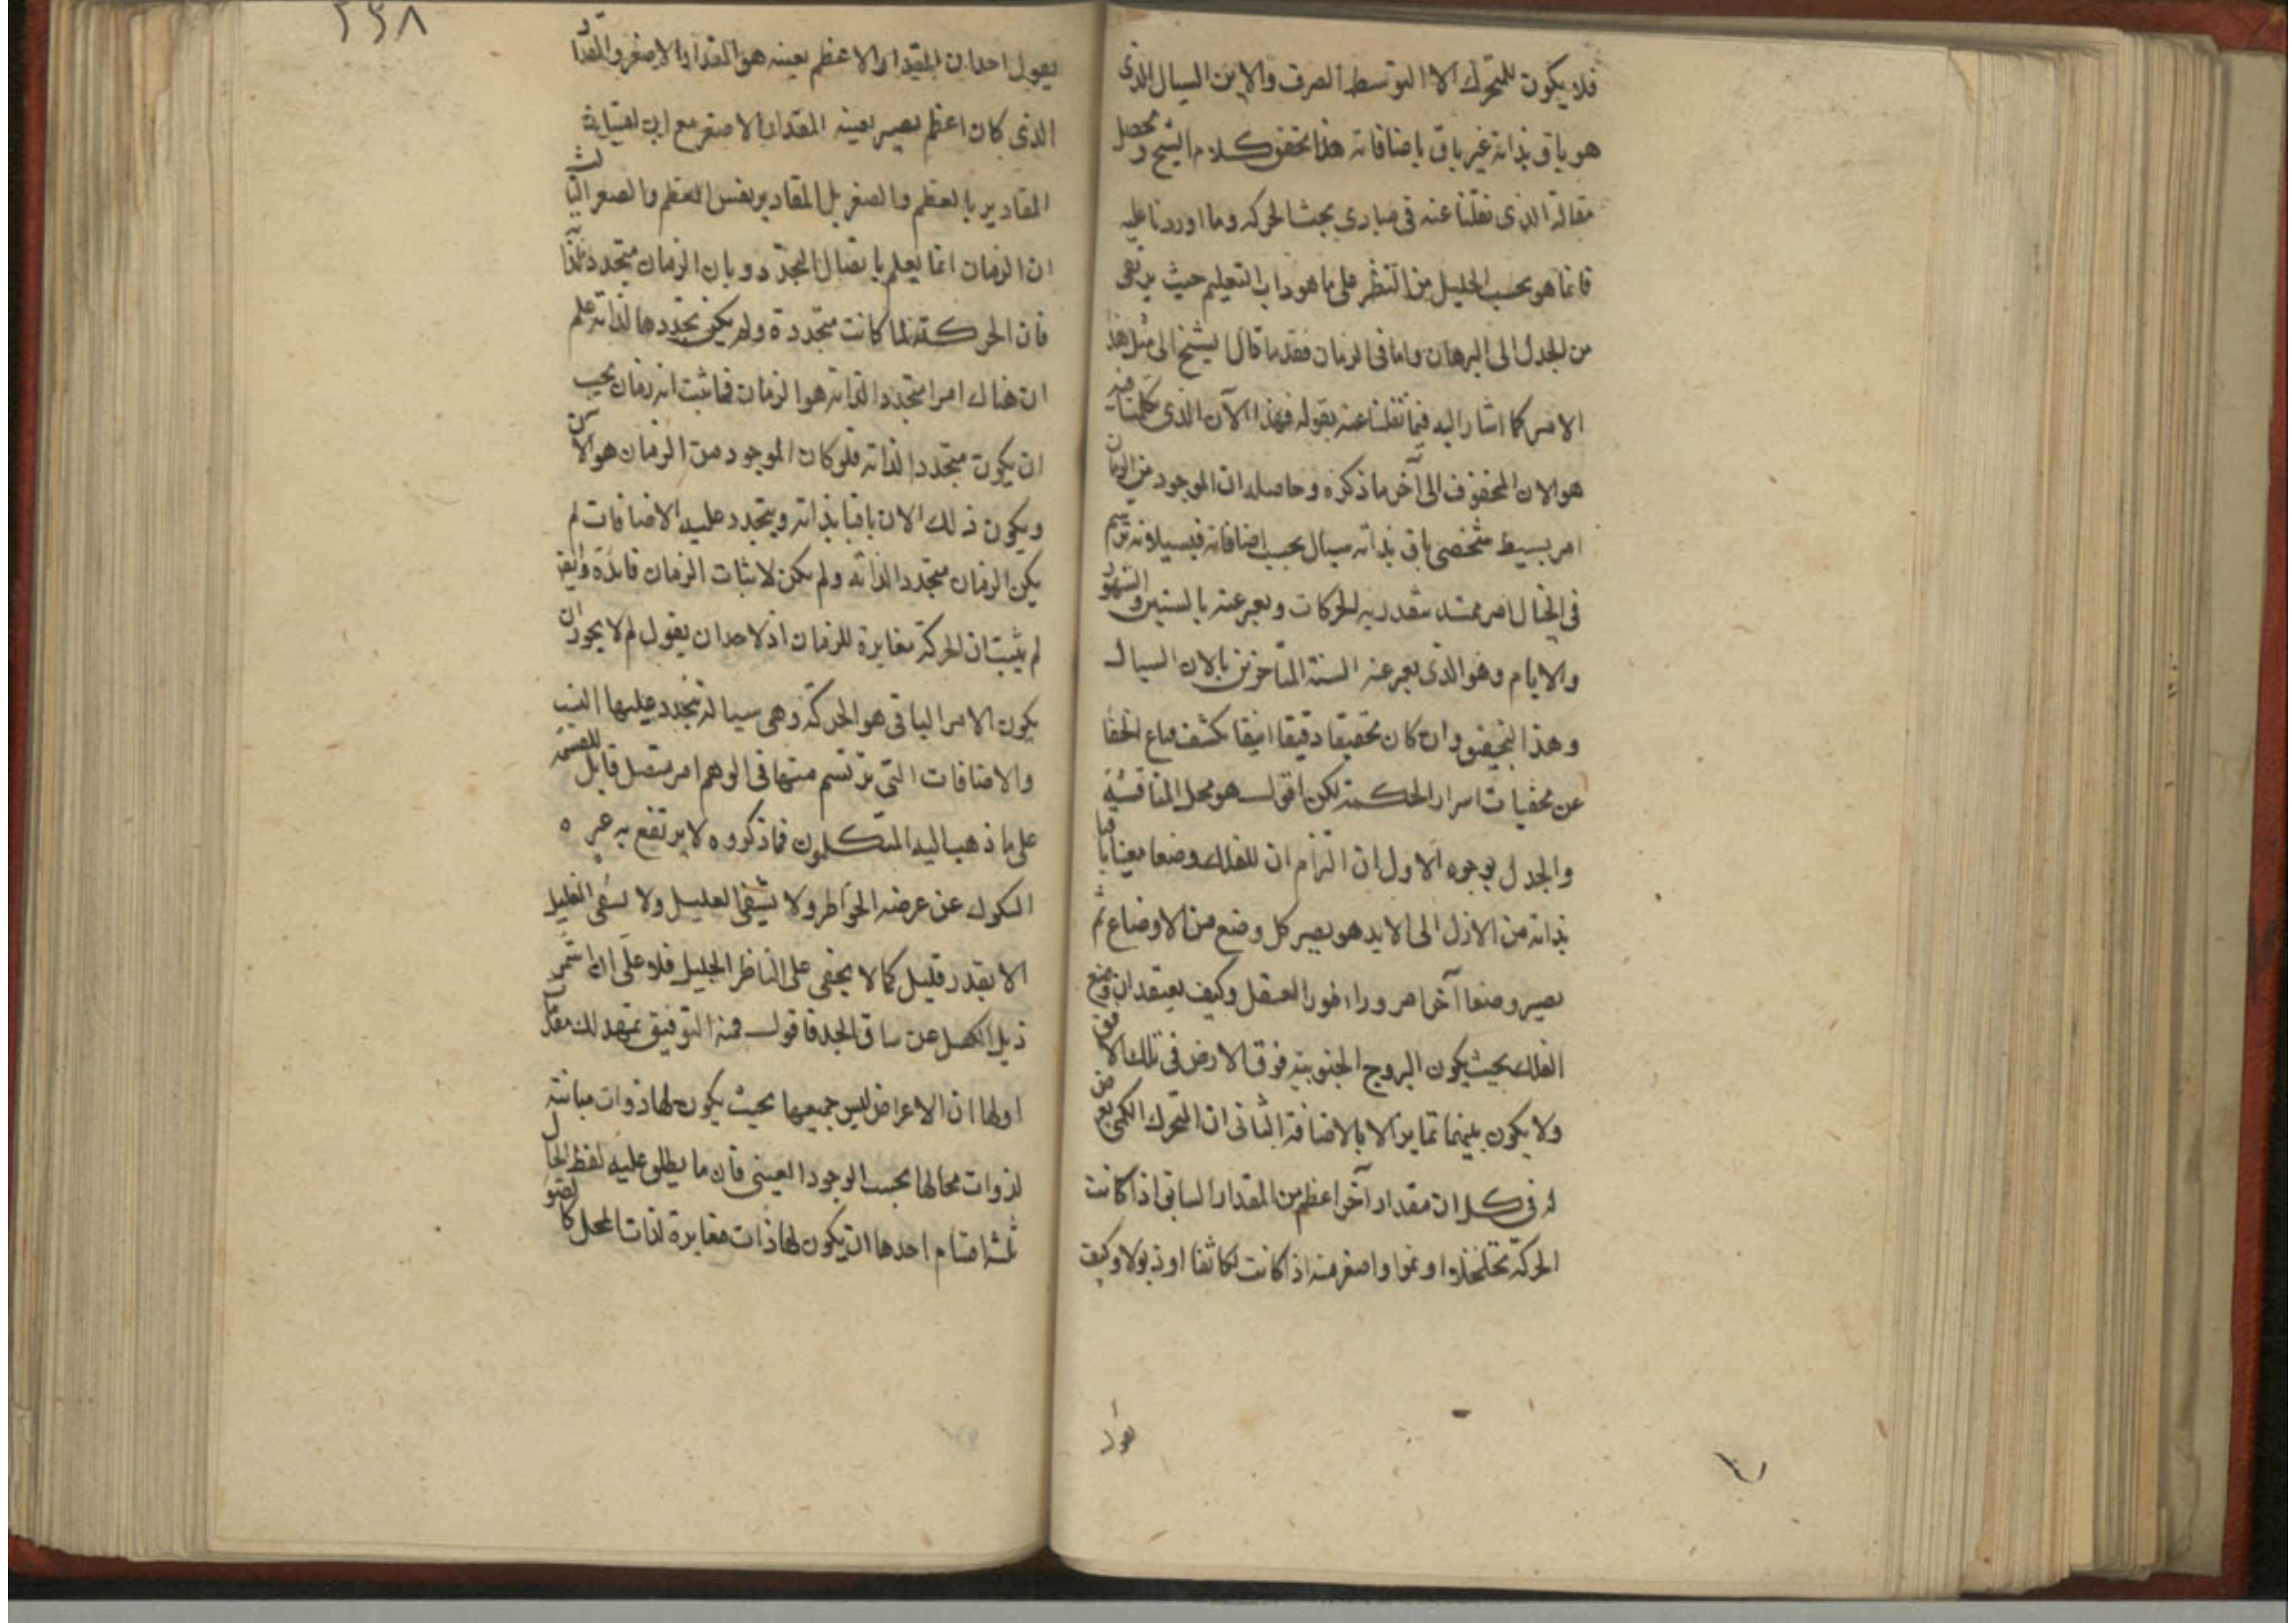 فلا يكون للمتحرك الا التوسط الصرف والاين السيال الذى
هو باق بذاته غير باق باضافاته هذا تحقق كلام الشيخ ومحصل
مقالة الذى نقلنا عنه فى مبادى بحث الحركه وما اوردنا عليه
فانما هو بحسب الجليل من النظر على ما هو داب التعليم حيث يرتقى
من الجدل الى البرهان واما فى الزمان فقد ما قال الشيخ الى مثل هذا
الامر كما اشار اليه فيما نقلنا عنه بقوله فهذا الآن الذى تكلمنا فيه
هو الان المحفوف الى آخر ما ذكره وحاصله ان الموجود من الزمان
امر بسيط شخصى باق بذاته سيال بحسب اضافاته فبسيلانه ترسم
فى الخيال امر ممتد يتقدر به الحركات ويعبر عنه بالسنين والشهور
والايام وهو الذى يعبر عنه السنة المتأخرين بالان السيال
وهذا التحقيق وان كان تحقيقا دقيقا انيقا يكشف قناع الخفا
عن مخفيات اسرار الحكمة لكن اقول هو محل المناقشة
والجدل بوجوه الاول ان التزام ان للفلك وضعا معينا باقيا
بذاته من الازل الى الابد هو يصير كل وضع من الاوضاع ثم
يصير وضعا آخر امر وراء طور العقل وكيف يعتقد ان وضع
الفلك بحيث يكون البروج الجنوبية فوق الارض فى تلك الافق
ولا يكون بينهما تمايز الا بالاضافة الثانى ان المتحرك الكمى يعرض
له فى كل ان مقدار آخر اعظم من المقدار السابق اذا كانت
الحركة تخلخلا او نموا واصغر منه اذا كانت تكاثفا او ذبولا وكيف
يقول
٢٤٨
يقول احد ان المقدار الاعظم بعينه هو المقدار الاصغر والمقدار
الذى كان اعظم يصير بعينه المقدار الاصغر مع ان
المقادير بالعظم والصغر بل المقادير نفس العظم والصغر الثالث
ان الزمان انما يعلم باتصال التجدد وبان الزمان متجدد لذاته
فان الحركة لما كانت متجددة ولم يكن تجددها لذاته علم
ان هناك امرا متجددا لذاته هو الزمان فما ثبت انه زمان يجب
ان يكون متجددا لذاته فلو كان الموجود من الزمان هو الان
ويكون ذلك الان باقيا بذاته ويتجدد عليه الاضافات لم
يكن الزمان متجددا لذاته ولم يكن لاثبات الزمان فائدة وايضا
لم يثبت ان الحركة مغايرة للزمان اذ لاحد ان يقول لم لا يجوز ان
يكون الامر الباقى هو الحركة وهى سيالة تتجدد عليها النسب
والاضافات التى يرتسم منها فى الوهم امر متصل قابل للقسمة
على ما ذهب اليه المتكلمون فما ذكروه لا يرتفع به
الشكوك عن عرضه الخواطر ولا يشفى العليل ولا يسقى الغليل
الا بقدر قليل كما لا يخفى على الناظر الجليل فلا على ان اشمر
ذيل الكسل عن ساق الجد فاقول ومنه التوفيق نمهد لك مقدمات
اولها ان الاعراض ليس جميعها بحيث يكون لها ذوات مباينة
لذوات محالها بحسب الوجود العينى فان ما يطلق عليه لفظ الحال
ثلثة اقسام احدها ان يكون لها ذات مغايرة لذات المحل كالصور